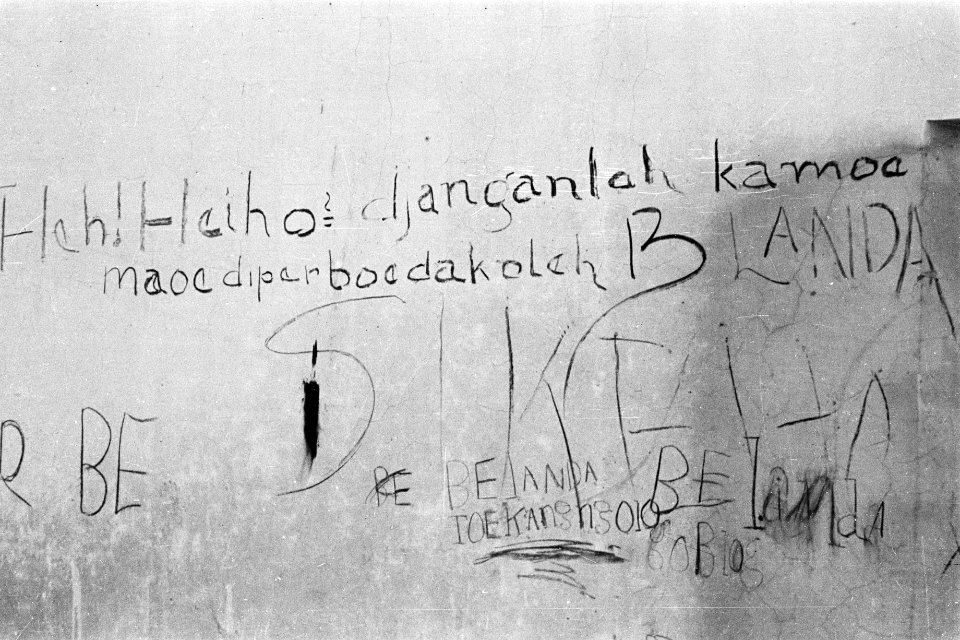 Heh! Heiho! djanganlah kamoe
maoe diperboedak oleh BLANDA
R BE
BELANDA
TOEKANG NGOLO
BELANDA
GOBLOG